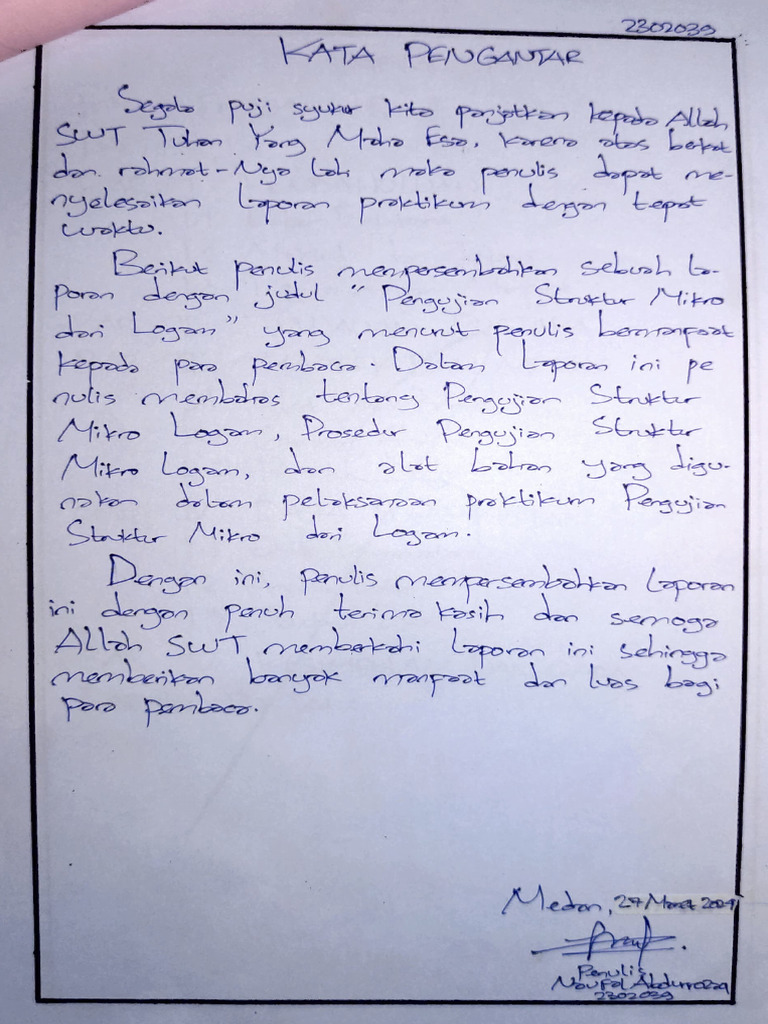 2302039
KATA PENGANTAR
Segala puji syukur kita panjatkan kepada Allah
SWT Tuhan Yang Maha Esa, karena atas berkat
dan rahmat-Nya lah maka penulis dapat me-
nyelesaikan laporan praktikum dengan tepat
waktu.
Berikut penulis mempersembahkan sebuah la-
poran dengan judul "Pengujian Struktur Mikro
dari Logam" yang menurut penulis bermanfaat
kepada para pembaca. Dalam laporan ini pe
nulis membahas tentang Pengujian Struktur
Mikro Logam, Prosedur Pengujian Struktur
Mikro Logam, dan alat bahan yang digu-
nakan dalam pelaksanaan praktikum Pengujian
Struktur Mikro dari Logam.
Dengan ini, penulis mempersembahkan laporan
ini dengan penuh terima kasih dan semoga
Allah SWT memberkahi laporan ini sehingga
memberikan banyak manfaat dan luas bagi
para pembaca.
Medan, 27 Maret 2024
Penulis
Naufal Abdurrozaq
2302039